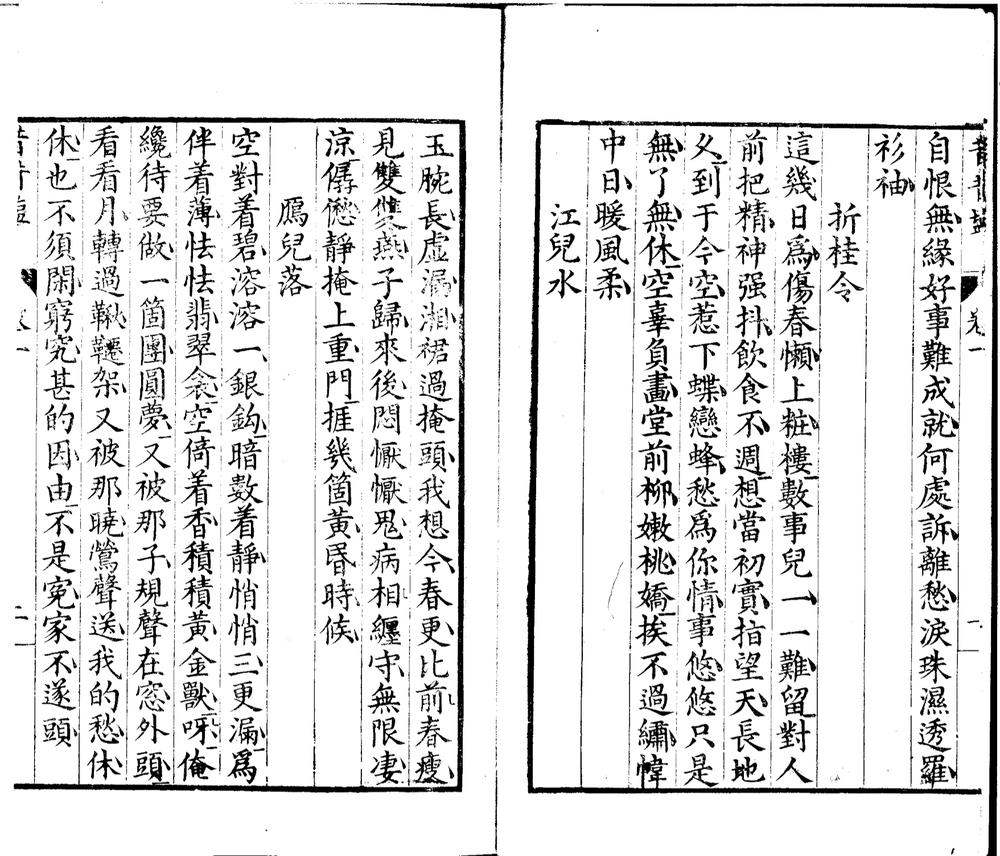 自恨無緣好事難成就何處訴離愁淚珠濕透羅
衫袖
折桂令
這幾日爲傷春懶上粧樓數事兒一一難留對人
前把精神强抖飲食不週想當初實指望天長地
久到于今空惹下蝶戀蜂愁爲你情事悠悠只是
無了無休空辜負畫堂前柳嫩桃嬌挨不過繡幃
中日暖風柔
江兒水
玉腕長虛漏湘裙過掩頭我想今春更比前春瘦
見雙雙燕子歸來後悶懨懨鬼病相纏守無限淒
涼僝僽靜掩上重門捱幾箇黃昏時候
鴈兒落
空對着碧溶溶一銀鈎暗數着靜悄悄三更漏爲
伴着薄怯怯翡翠衾空倚着香積積黃金獸呀俺
纔待要做一箇團圓夢又被那子規聲在窓外頭
看看月轉過鞦韆架又被那曉鶯聲送我的愁休
休也不須閑窮究甚的因由不是寃家不遂頭
卷一
卷一
二